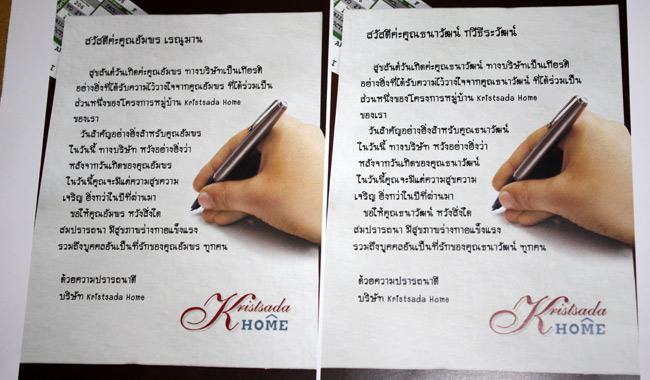 สวัสดีค่ะคุณอัมพร เรณูมาน
สุขสันต์วันเกิดค่ะคุณอัมพร ทางบริษัทเป็นเกียรติ
อย่างยิ่งที่ได้รับความไว้วางใจจากคุณอัมพร ที่ได้ร่วมเป็น
ส่วนหนึ่งของโครงการหมู่บ้าน Kristsada Home
ของเรา
วันสำคัญอย่างยิ่งสำหรับคุณอัมพร
ในวันนี้ ทางบริษัท หวังอย่างยิ่งว่า
หลังจากวันเกิดของคุณอัมพร
ในวันนี้คุณจะมีแต่ความสุขความ
เจริญ ยิ่งกว่าในปีที่ผ่านมา
ขอให้คุณอัมพร หวังสิ่งใด
สมปรารถนา มีสุขภาพร่างกายแข็งแรง
รวมถึงบุคคลอันเป็นที่รักของคุณอัมพร ทุกคน
ด้วยความปรารถนาดี
บริษัท Kristsada Home
Kristsada
HOME
สวัสดีค่ะคุณธนาวัฒน์ ทวีชีระวัฒน์
สุขสันต์วันเกิดค่ะคุณธนาวัฒน์ ทางบริษัทเป็นเกียรติ
อย่างยิ่งที่ได้รับความไว้วางใจจากคุณธนาวัฒน์ ที่ได้ร่วมเป็น
ส่วนหนึ่งของโครงการหมู่บ้าน Kristsada Home
ของเรา
วันสำคัญอย่างยิ่งสำหรับคุณธนาวัฒน์
ในวันนี้ ทางบริษัท หวังอย่างยิ่งว่า
หลังจากวันเกิดของคุณธนาวัฒน์
ในวันนี้คุณจะมีแต่ความสุขความ
เจริญ ยิ่งกว่าในปีที่ผ่านมา
ขอให้คุณธนาวัฒน์ หวังสิ่งใด
สมปรารถนา มีสุขภาพร่างกายแข็งแรง
รวมถึงบุคคลอันเป็นที่รักของคุณธนาวัฒน์ ทุกคน
ด้วยความปรารถนาดี
บริษัท Kristsada Home
Kristsada
HOME